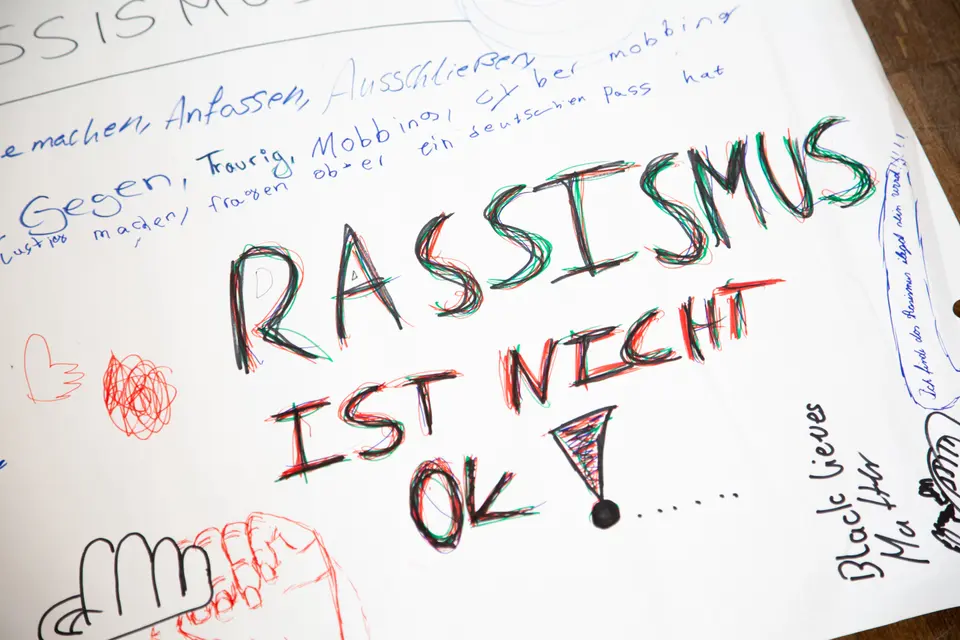 SSISMUS
e machen, Anfassen, Ausschließen,
Gegen, Traurig, Mobbing, cyber mobbing
Lustig machen, fragen ob er ein deutschen Pass hat
RASSISMUS
IST NICHT
OK!......
Ich finde das Rassismus illegal sein
Black lieves
Matter